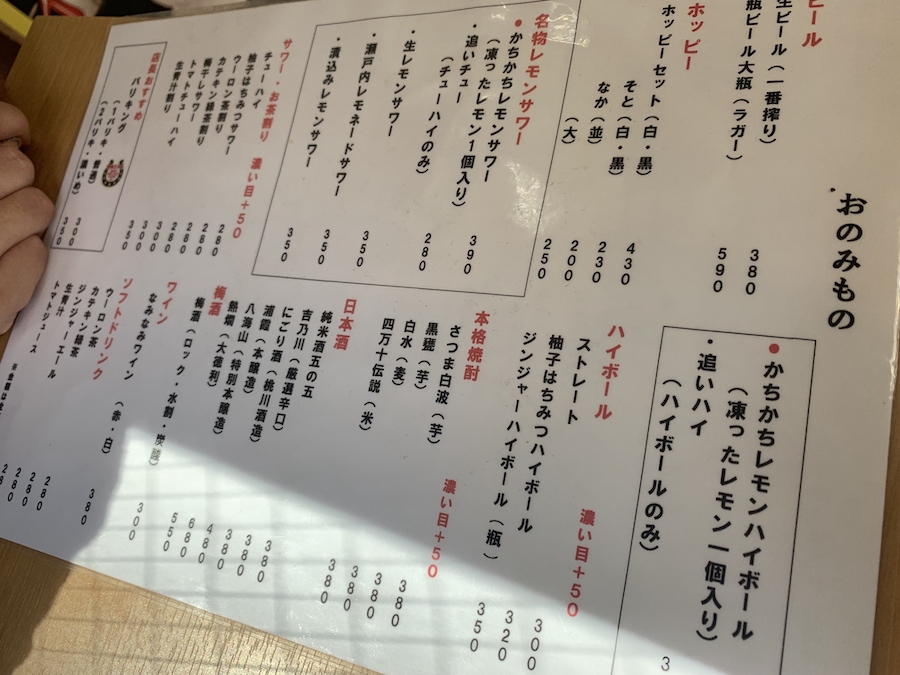 おのみもの
ビール
生ビール（一番搾り） 380
瓶ビール大瓶（ラガー） 590
ホッピー
ホッピーセット（白・黒） 430
そと（白・黒） 230
なか（並） 200
（大） 250
名物レモンサワー
・かちかちレモンサワー
（凍ったレモン1個入り） 390
・追いチュー
（チューハイのみ） 280
・生レモンサワー
・瀬戸内レモネードサワー 350
・漬込みレモンサワー 350
350
サワー・お茶割り 濃い目+50
チューハイ 280
柚子はちみつサワー 280
ウーロン茶割り 280
カテキン緑茶割り 280
梅干しサワー 300
トマトチューハイ 300
生青汁割り 350
店長おすすめ
バリキング
（1バリキ・普通） 300
（2バリキ・濃いめ） 350
・かちかちレモンハイボール
（凍ったレモン一個入り）
・追いハイ
（ハイボールのみ） 3
ハイボール 濃い目+50
ストレート 300
柚子はちみつハイボール 320
ジンジャーハイボール（瓶） 350
本格焼酎 濃い目+50
さつま白波（芋） 380
黒甕（芋） 380
白水（麦） 380
四万十伝説（米） 380
日本酒
純米酒五の五 380
吉乃川（厳選辛口） 380
にごり酒（桃川酒造） 380
浦霞（本醸造） 480
八海山（特別本醸造） 680
熱燗（大徳利） 550
梅酒
梅酒（ロック・水割・炭酸） 300
ワイン
なみなみワイン（赤・白） 380
ソフトドリンク
ウーロン茶 280
カテキン緑茶 280
ジンジャーエール 280
生青汁 28
トマトジュース